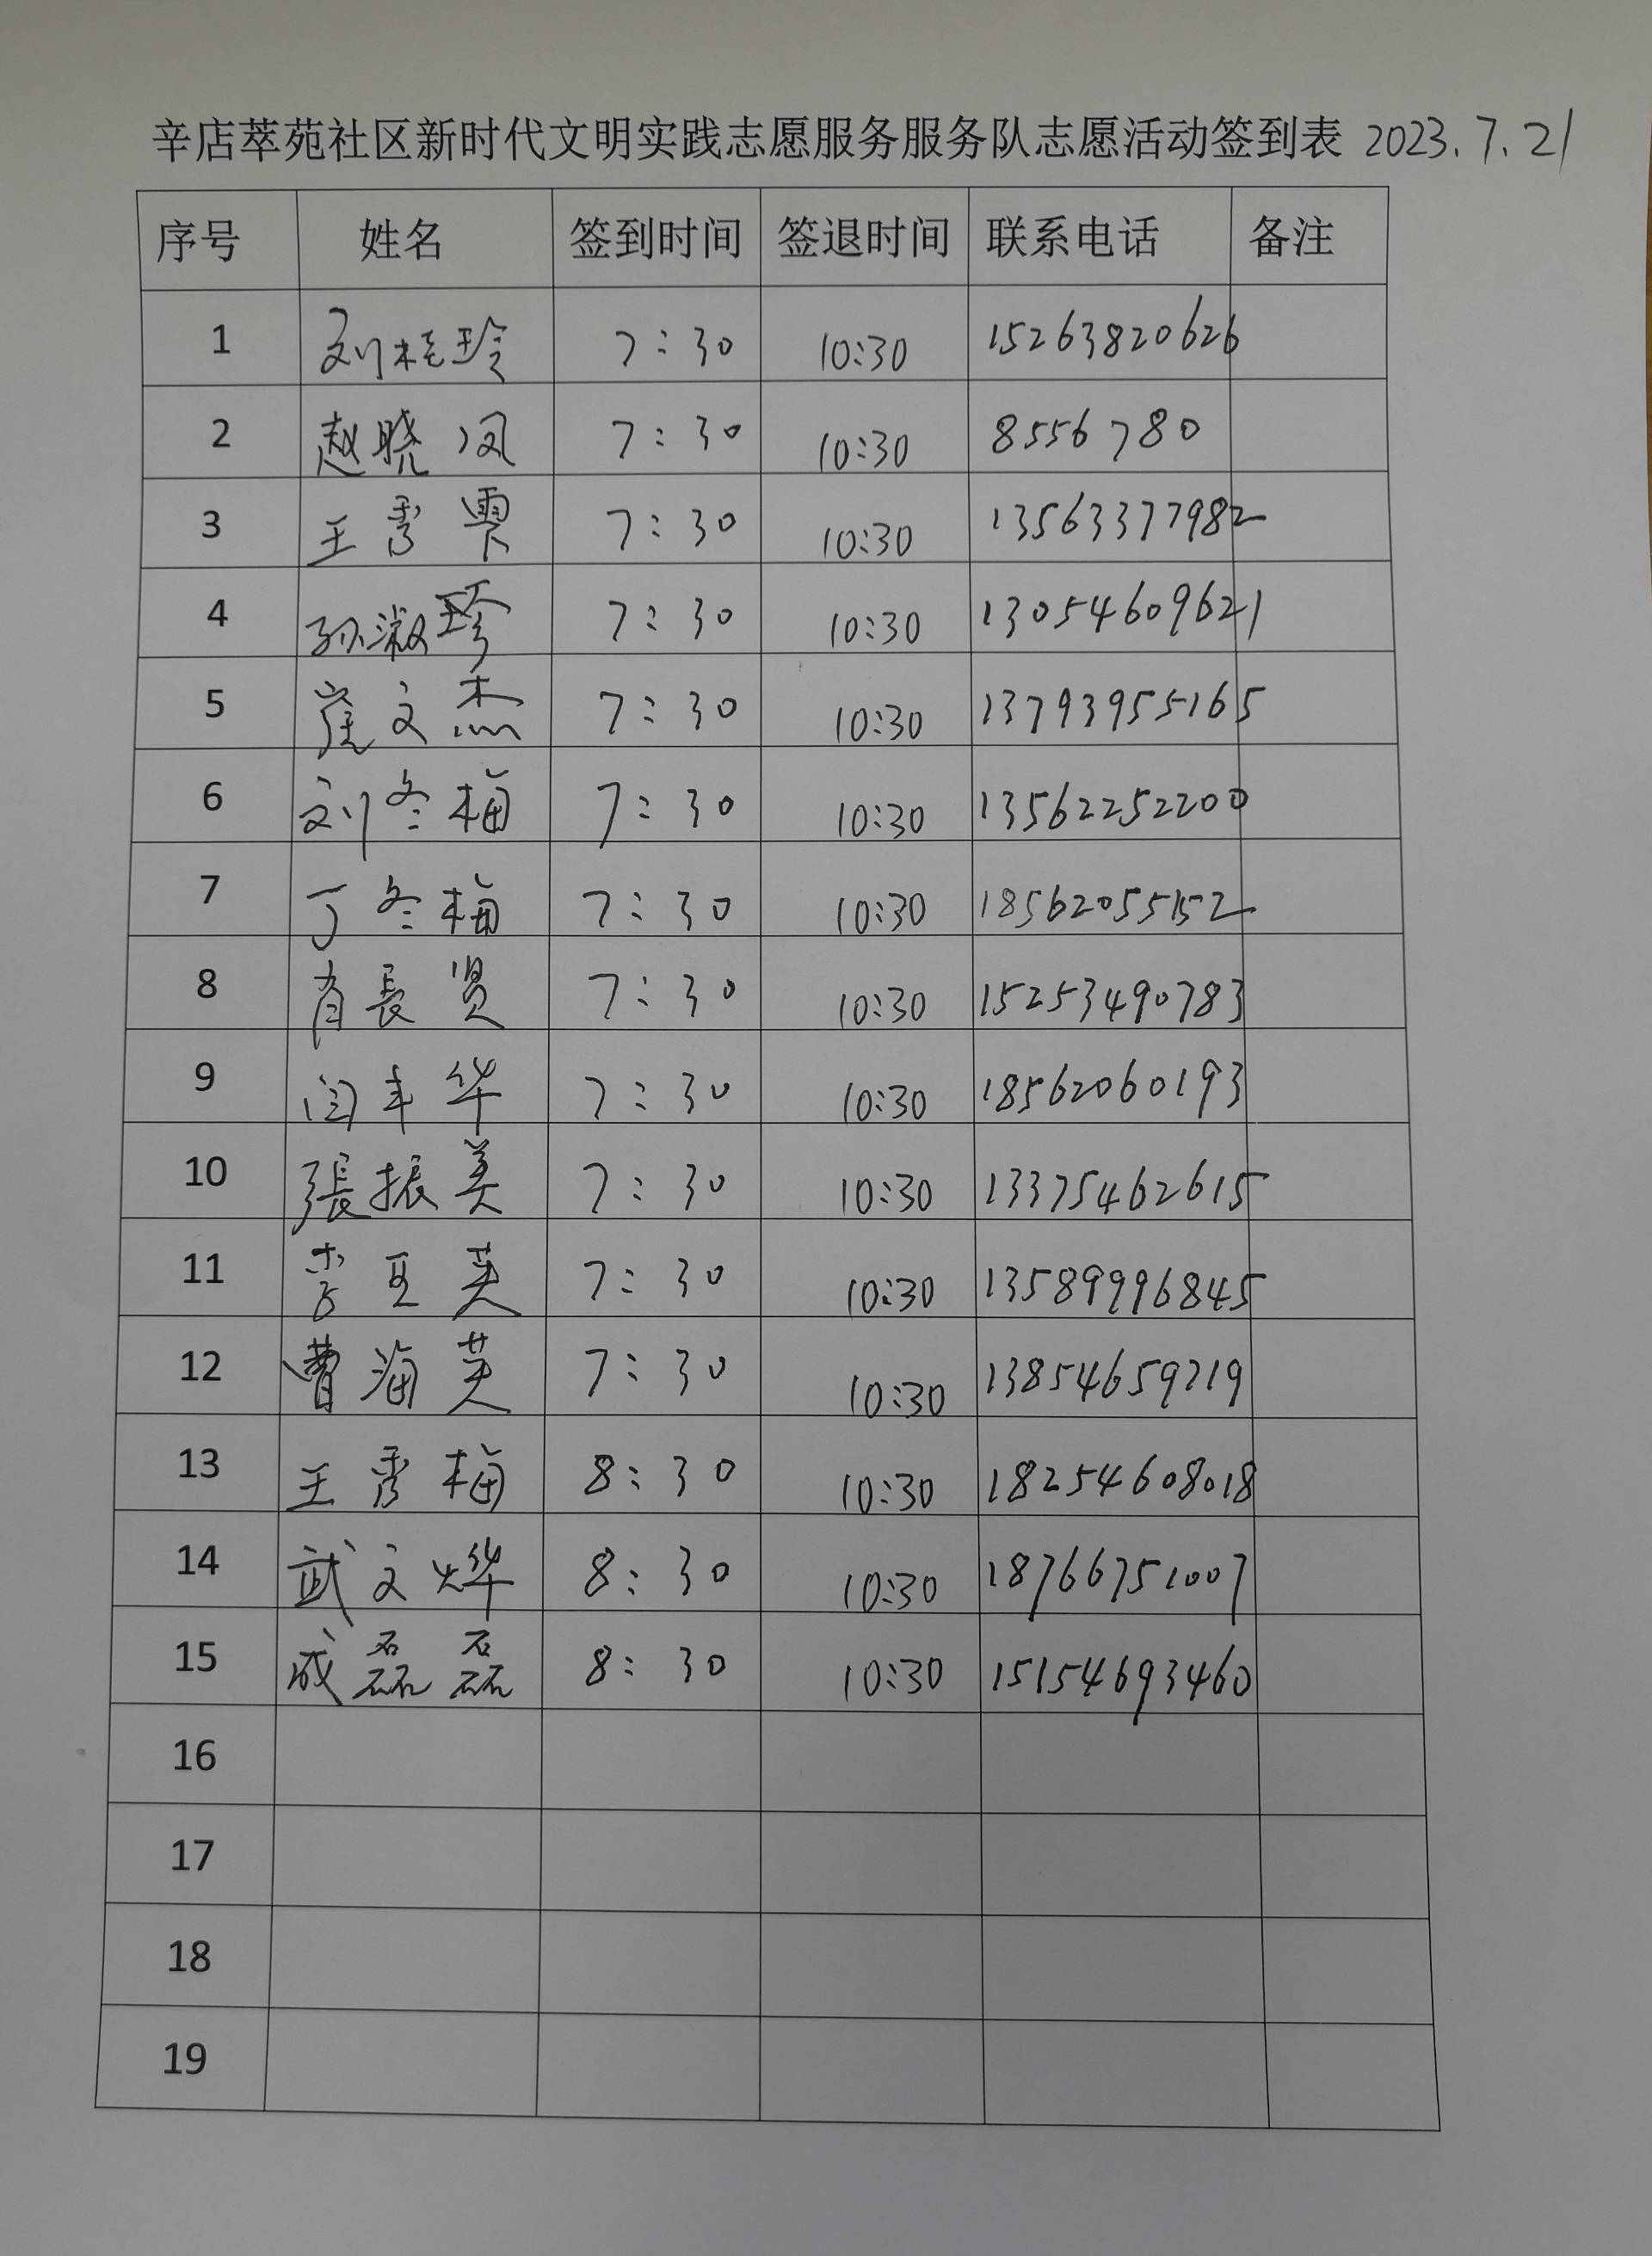 辛店萃苑社区新时代文明实践志愿服务服务队志愿活动签到表 2023.7.21
序号 姓名 签到时间 签退时间 联系电话 备注
1 刘桂玲 7:30 10:30 15263820626
2 赵晓凤 7:30 10:30 8556780
3 王秀 7:30 10:30 13563377982
4 孙淑珍 7:30 10:30 13054609621
5 崔文杰 7:30 10:30 13793955165
6 刘冬梅 7:30 10:30 13562252200
7 丁冬梅 7:30 10:30 18562055152
8 肖長贤 7:30 10:30 15253490783
9 闫丰华 7:30 10:30 18562060193
10 張振美 7:30 10:30 13375462615
11 李玉英 7:30 10:30 13589996845
12 曹海英 7:30 10:30 13854659719
13 王秀梅 8:30 10:30 18254608018
14 武文烨 8:30 10:30 18766751007
15 成磊磊 8:30 10:30 15154693460
16
17
18
19